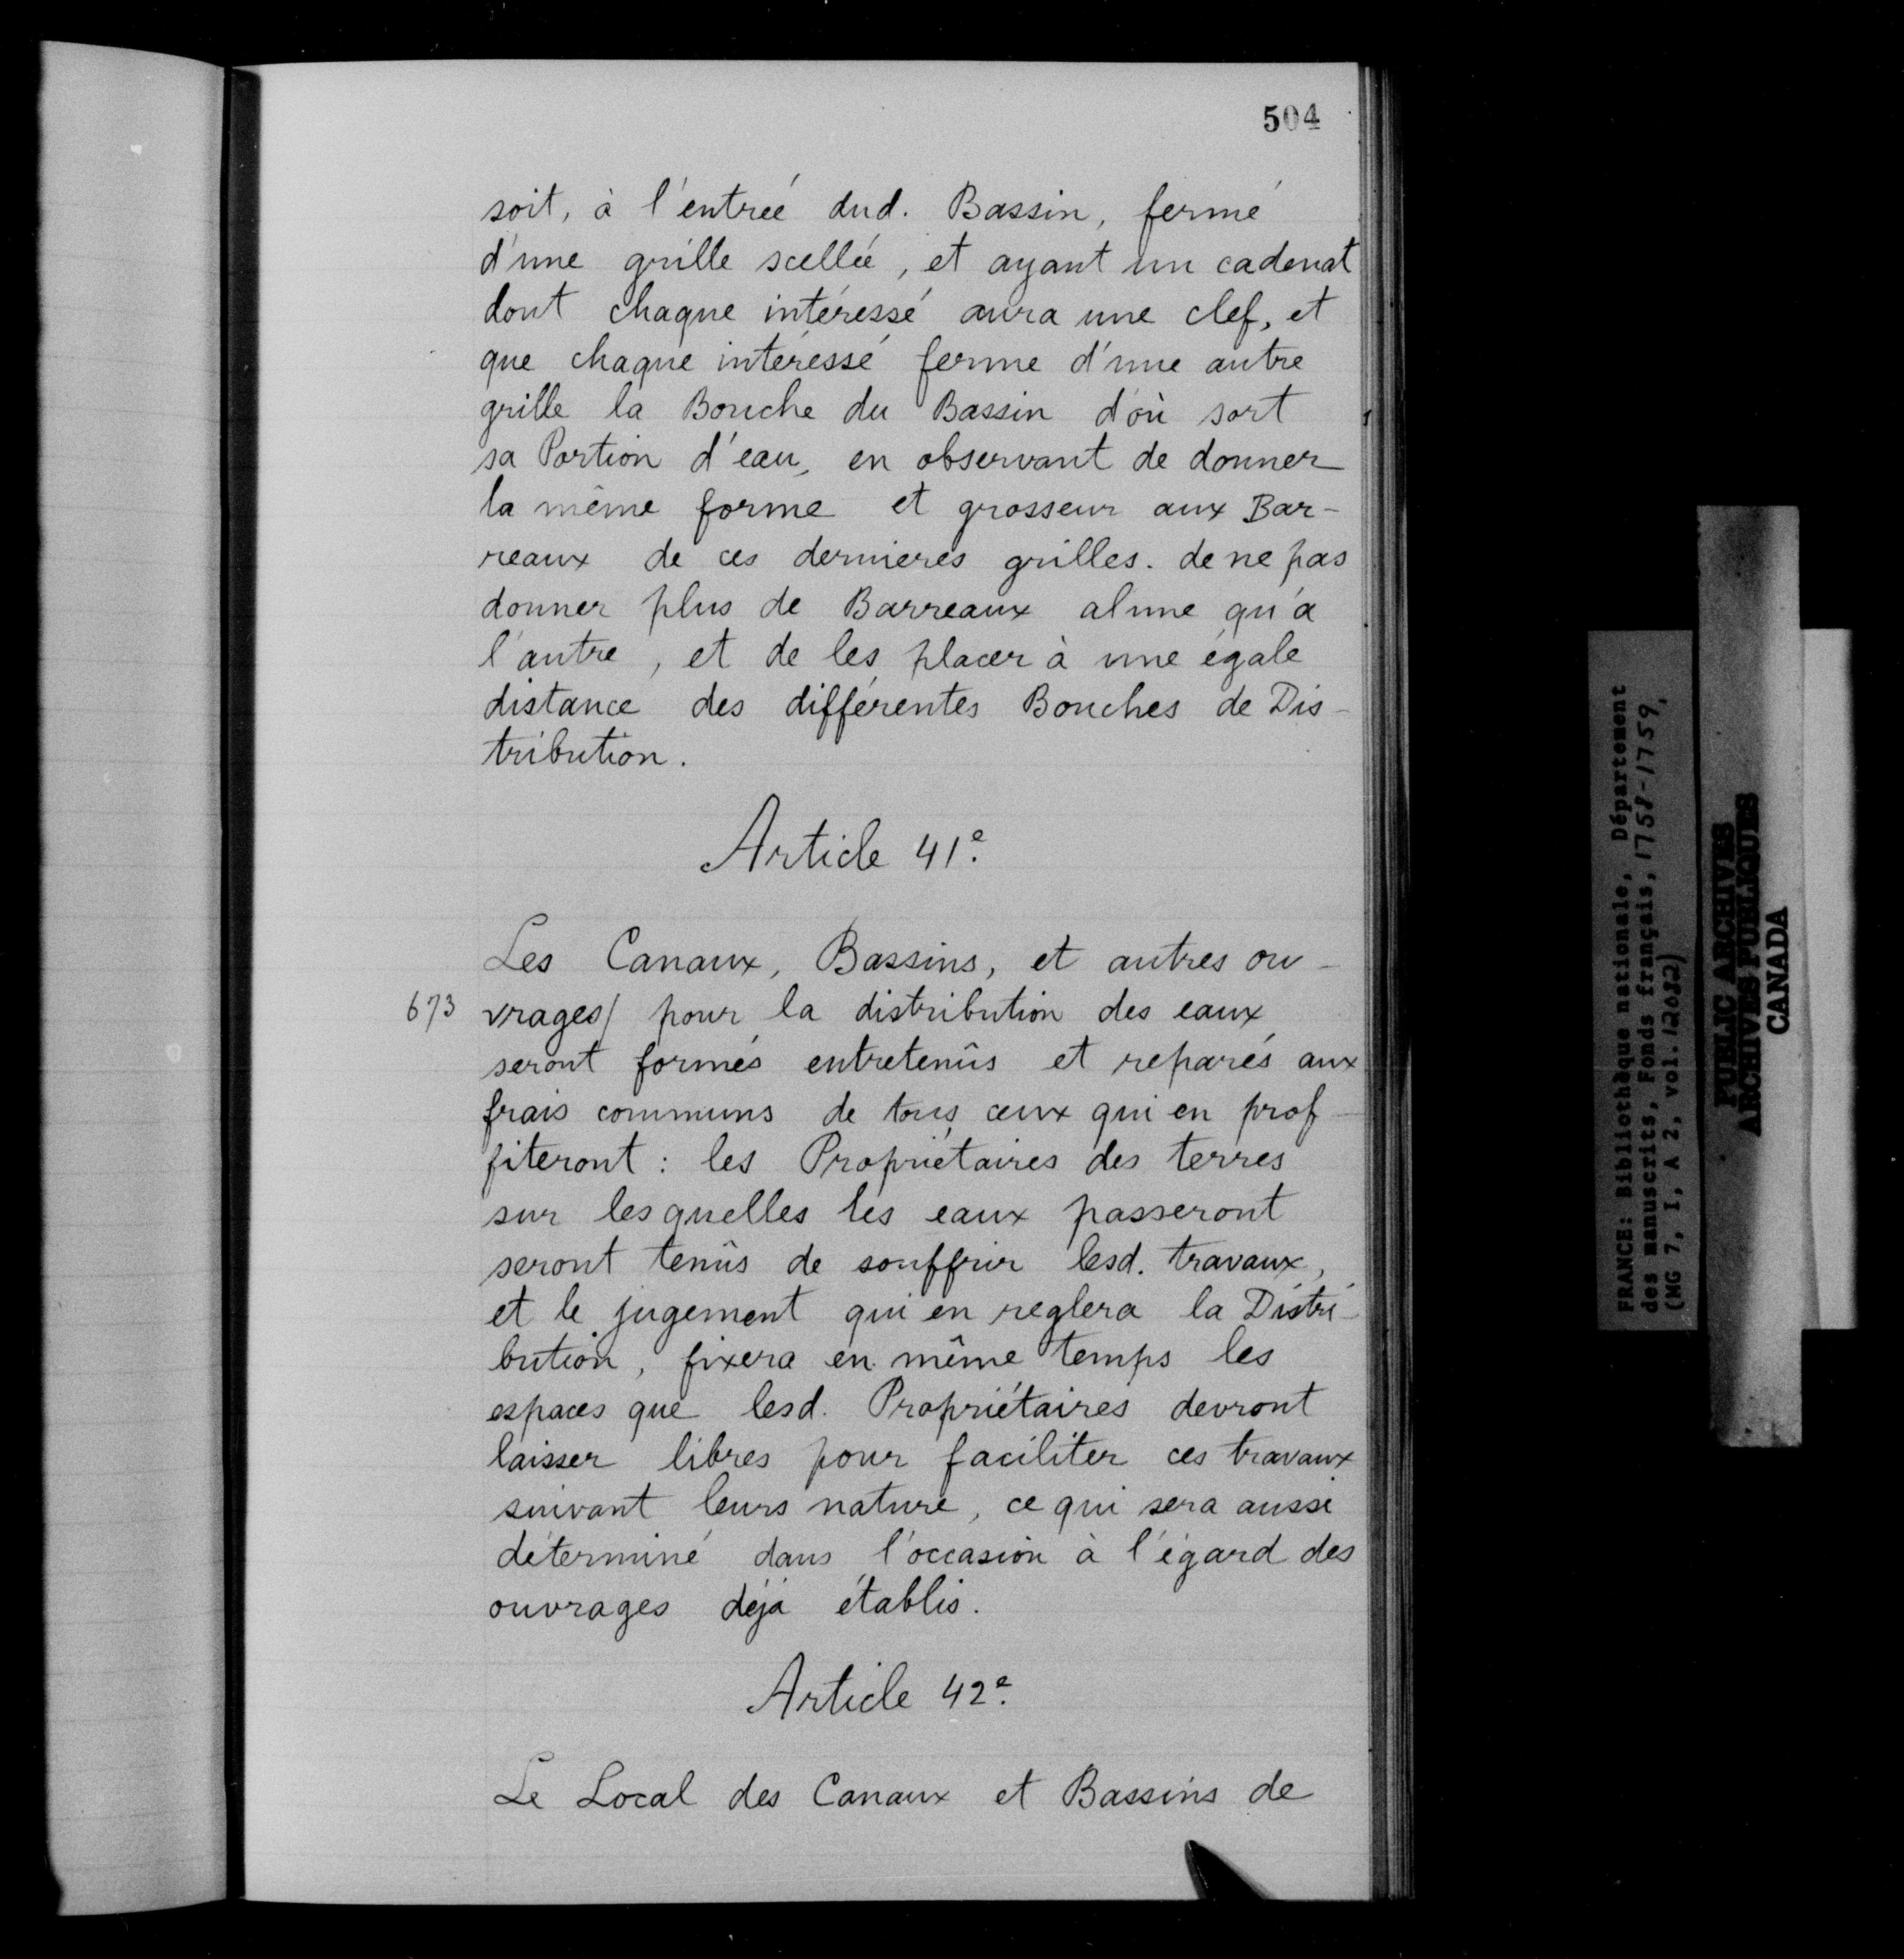 504
soit, à l'entrée dud. Bassin, fermé
d'une grille scellée, et ayant un cadenat
dont chaque intéressé aura une clef, et
que chaque intéressé ferme d'une autre
grille la Bouche du Bassin d'où sort
sa Portion d'eau, en observant de donner
la même forme et grosseur aux Bar-
reaux de ces dernieres grilles. de ne pas
donner plus de Barreaux alune qu'a
l'autre, et de les placer à une égale
distance des différentes Bouches de Dis-
tribution.
Article 41e.
Les Canaux, Bassins, et autres ou-
673 vrages/ pour la distribution des eaux
seront formés entretenûs et reparés aux
frais communs de tous ceux qui en prof-
fiteront : les Propriétaires des terres
sur lesquelles les eaux passeront
seront tenûs de souffrir lesd. travaux,
et le jugement qui en reglera la Distri-
bution, fixera en même temps les
espaces que lesd. Propriétaires devront
laisser libres pour faciliter ces travaux
suivant leurs nature, ce qui sera aussi
déterminé dans l'occasion à l'égard des
ouvrages déjà établis.
Article 42e.
Le Local des Canaux et Bassins de
FRANCE: Bibliothèque nationale, Département
des manuscrits, Fonds français, 1758-1759,
(MG 7, I, A 2, vol. 12082)
PUBLIC ARCHIVES
ARCHIVES PUBLIQUES
CANADA